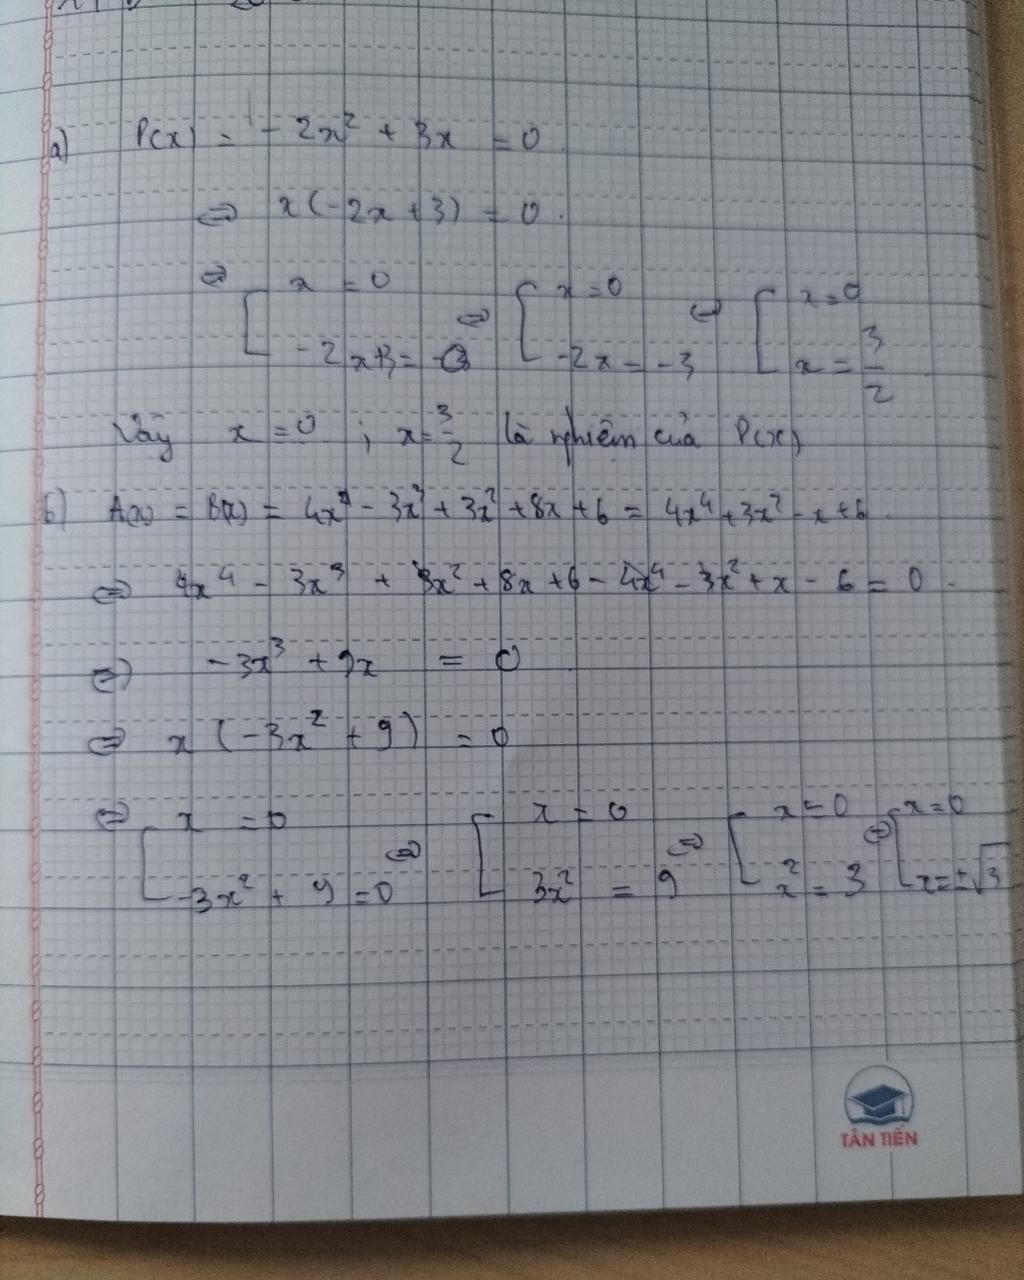 a) P(x) = - 2x² + 3x = 0
⇔ x(-2x + 3) = 0.
⇔ [ x = 0 ; -2x+3 = 0 ⇔ [ x = 0 ; -2x = -3 ⇔ [ x = 0 ; x = 3/2
Vậy x = 0 ; x = 3/2 là nghiệm của P(x)
b) A(x) = B(x) = 4x⁴ - 3x³ + 3x² + 8x + 6 = 4x⁴ + 3x² - x + 6.
⇔ 4x⁴ - 3x³ + 3x² + 8x + 6 - 4x⁴ - 3x² + x - 6 = 0.
⇔ -3x³ + 9x = 0
⇔ x (-3x² + 9) = 0
⇔ [ x = 0 ; -3x² + 9 = 0 ⇔ [ x = 0 ; 3x² = 9 ⇔ [ x = 0 ; x² = 3 ⇔ [ x = 0 ; x = ±√3
TÂN TIẾN